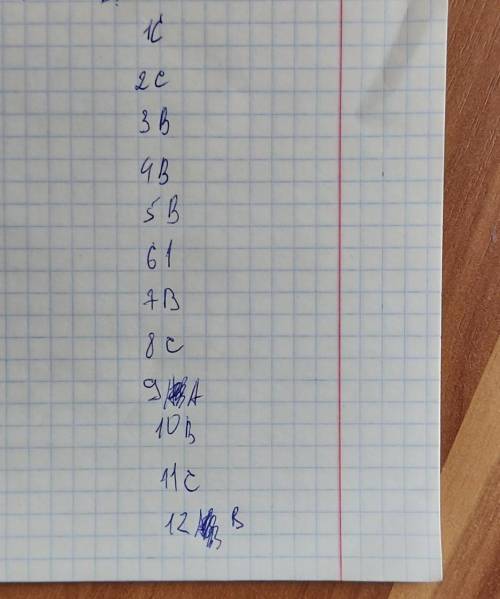 1C
2C
3B
4B
5B
61
7B
8C
9 A
10B
11C
12 B